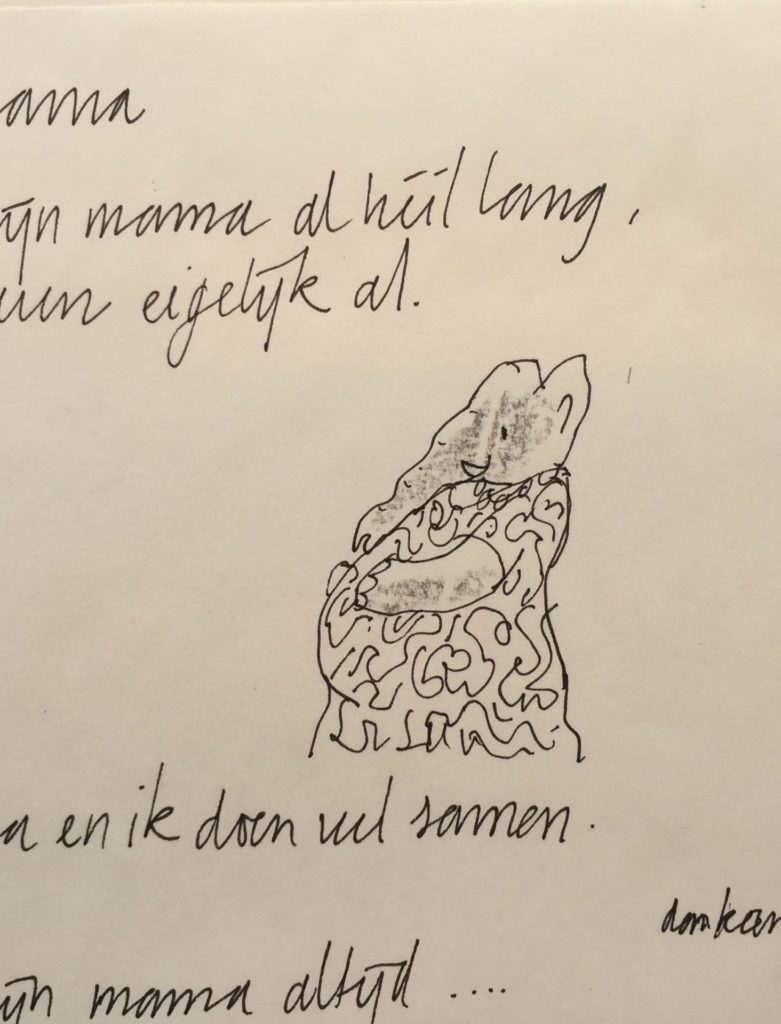 ama
ijn mama al héél lang,
eigelijk al.
a en ik doen veel samen.
ijn mama altijd ....